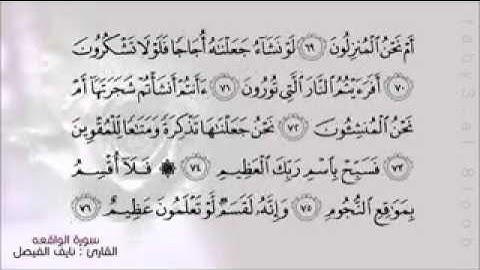 أَمْ نَحْنُ ٱلْمُنزِلُونَ ٦٩ لَوْ نَشَآءُ جَعَلْنَٰهُ أُجَاجًا فَلَوْلَا تَشْكُرُونَ
٧٠ أَفَرَءَيْتُمُ ٱلنَّارَ ٱلَّتِى تُورُونَ ٧١ ءَأَنتُمْ أَنشَأْتُمْ شَجَرَتَهَآ أَمْ
نَحْنُ ٱلْمُنشِـُٔونَ ٧٢ نَحْنُ جَعَلْنَٰهَا تَذْكِرَةً وَمَتَٰعًا لِّلْمُقْوِينَ
٧٣ فَسَبِّحْ بِٱسْمِ رَبِّكَ ٱلْعَظِيمِ ٧٤ ۞ فَلَآ أُقْسِمُ
بِمَوَٰقِعِ ٱلنُّجُومِ ٧٥ وَإِنَّهُۥ لَقَسَمٌ لَّوْ تَعْلَمُونَ عَظِيمٌ ٧٦
سورة الواقعه
القارئ : نايف الفيصل